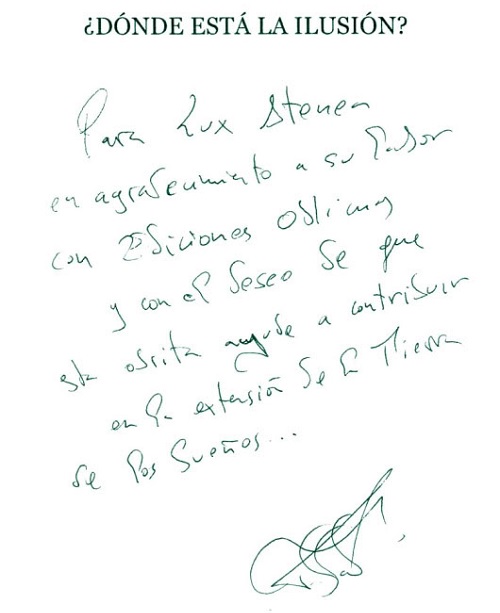 ¿DÓNDE ESTÁ LA ILUSIÓN?
Para Lux Atenea
en agradecimiento a su labor
con Ediciones Oblicuas
y con el deseo de que
esta obrita ayude a contribuir
en la extensión de la Tierra
de los Sueños...